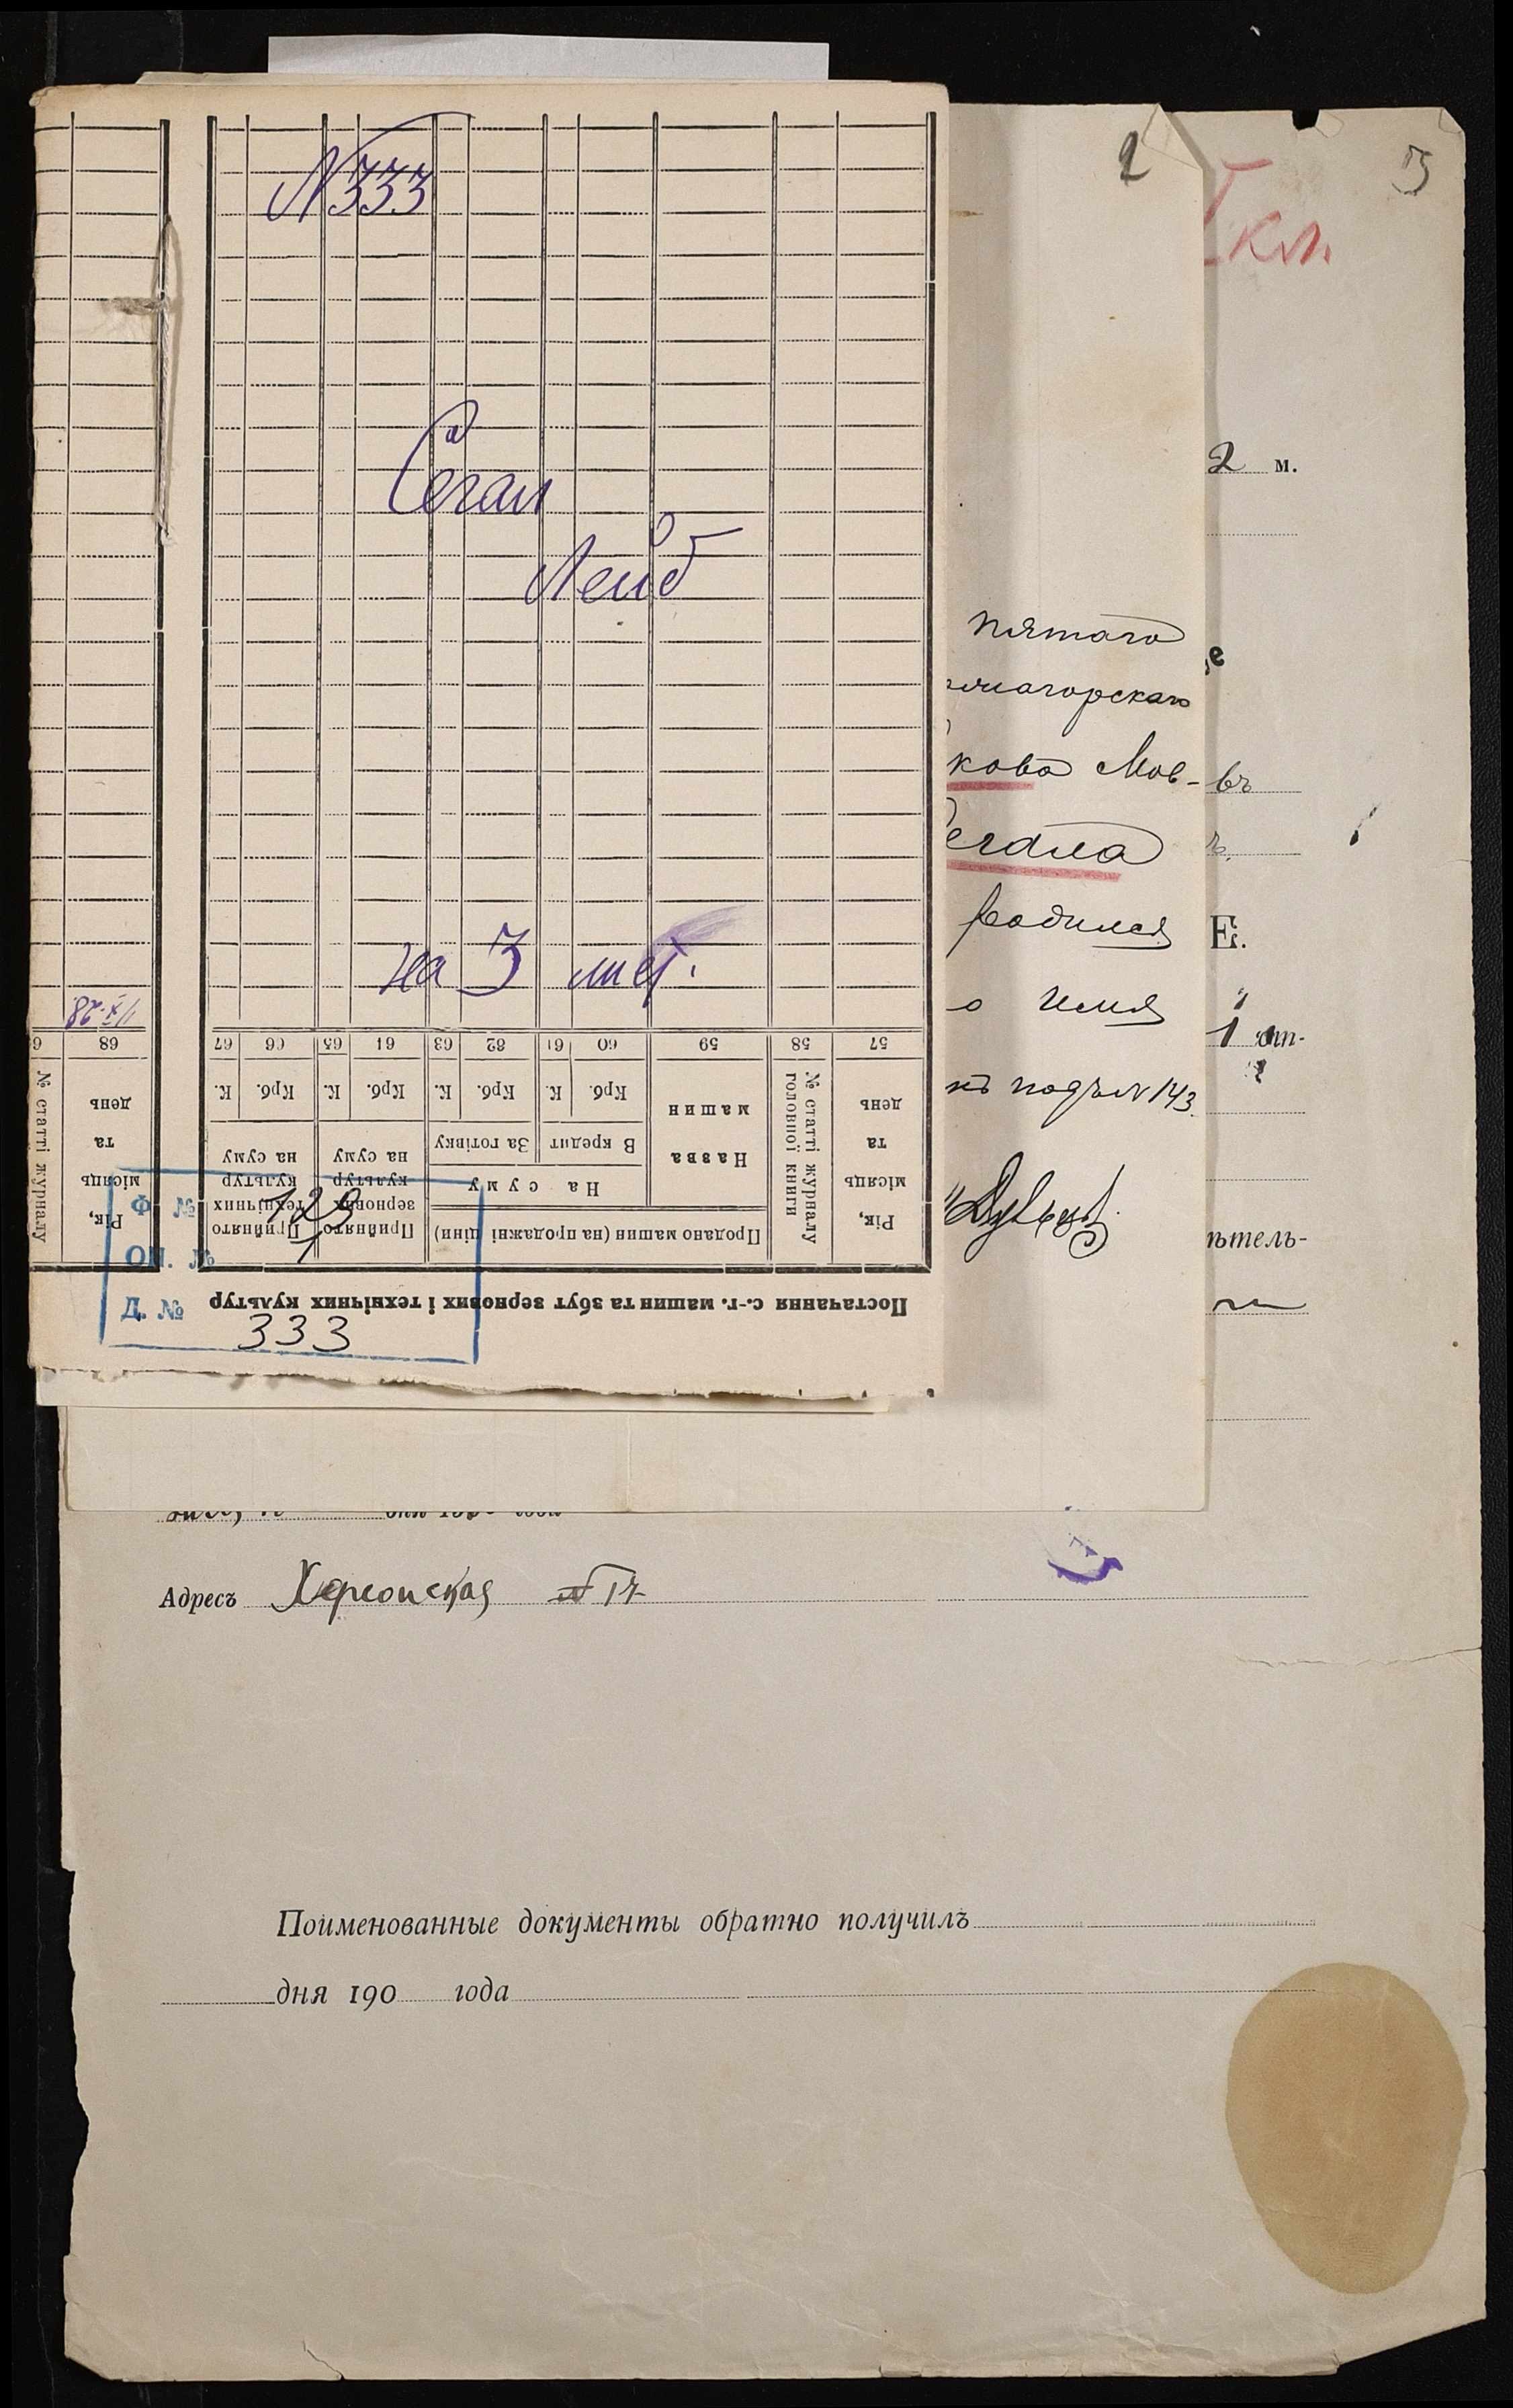 N 333
Сегал
Лейб
на 3 лист.
57 58 59 60 61 62 63 64 65 66 67
68
Рік, місяць та день
№ статті журналу головної книги
Назва машин
В кредит
За готівку
Крб. К. Крб. К. Крб. К. Крб. К.
На суму
Продано машин (на продажні ціни)
Прийнято зернових культур на суму
Прийнято технічних культур на суму
Рік, місяць та день
№ статті журналу
Постачання с.-г. машин та збут зернових і технічних культур
№ Ф 129
ОП. № 1
Д. № 333
2
пятаго
кова Мов-
родился
имя
подъ N 143.
3
I кл.
2 м.
въ
Е.
1
Адресъ Херсонская № 17
Поименованные документы обратно получилъ
дня 190 года